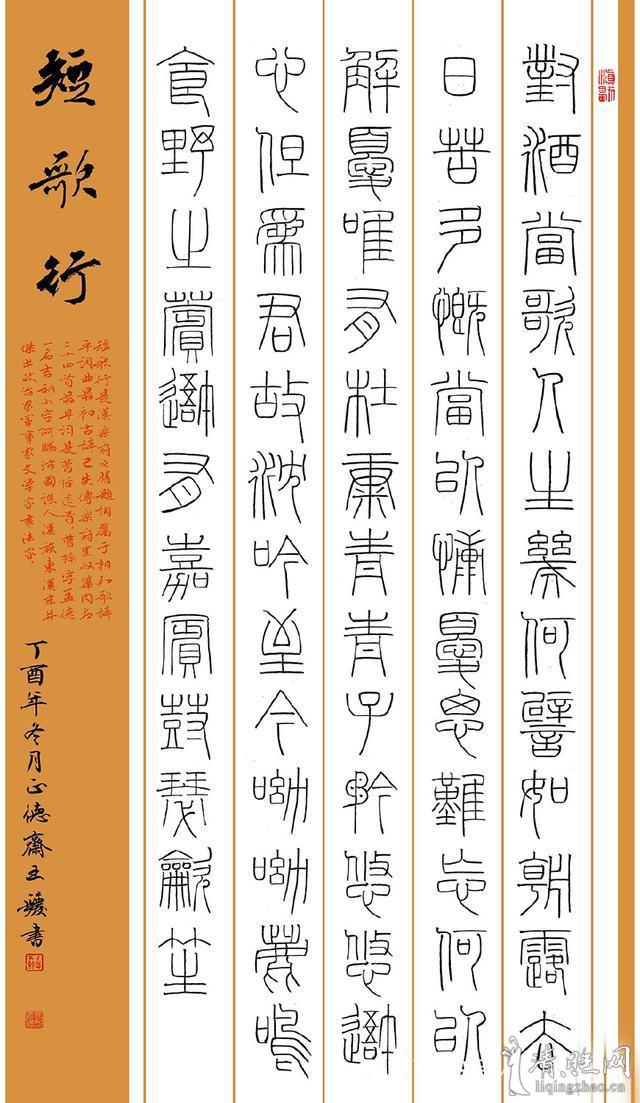 對酒當歌人生幾何譬如朝露去
日苦多慨當以慷憂思難忘何以
解憂唯有杜康青青子衿悠悠我
心但為君故沈吟至今呦呦鹿鳴
食野之蘋我有嘉賓鼓瑟龡笙
短歌行
短歌行是漢樂府之舊題詞屬于相和歌辭
平調曲最初古辭已失傳樂府里收集同名
二十四首最早詞是曹操首。曹操字孟德
一名吉利小字阿瞞沛國譙人漢族東漢末年
傑出政治家軍事家文學家書法家。
丁酉年冬月正德齋王書
liqingzhao.cn